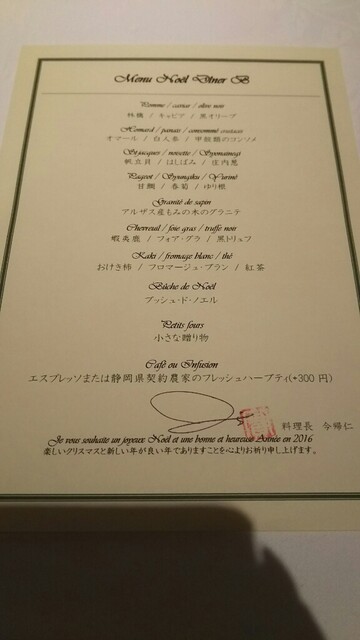 Menu Noël Dîner B
Pomme / caviar / olive noir
林檎 / キャビア / 黒オリーブ
Homard / panais / consommé crustacés
オマール / 白人参 / 甲殻類のコンソメ
St-jacques / noisette / Syonainegi
帆立貝 / はしばみ / 庄内葱
Pageot / Syungiku / Yuriné
甘鯛 / 春菊 / ゆり根
Granité de sapin
アルザス産もみの木のグラニテ
Chevreuil / foie gras / truffe noir
蝦夷鹿 / フォア・グラ / 黒トリュフ
Kaki / fromage blanc / thé
おけさ柿 / フロマージュ・ブラン / 紅茶
Bûche de Noël
ブッシュ・ド・ノエル
Petits fours
小さな贈り物
Café ou Infusion
エスプレッソまたは静岡県契約農家のフレッシュハーブティ(+300 円)
料理長 今帰仁
Je vous souhaite un joyeux Noël et une bonne et heureuse Année en 2016
楽しいクリスマスと新しい年が良い年でありますことを心よりお祈り申し上げます。